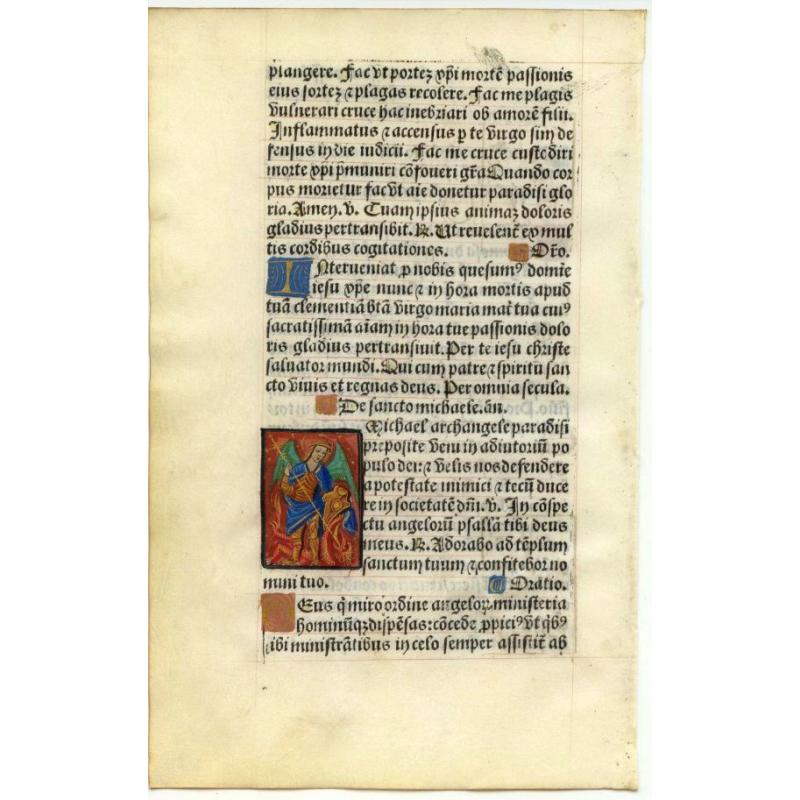 plangere. Fac vt portez xp̄i mortē passionis
eius sortez ⁊ plagas recolere. Fac me plagis
vulnerari cruce hac inebriari ob amorē filii.
Inflammatus ⁊ accensus p te virgo sim de
fensus in die iudicii. Fac me cruce custodiri
morte xp̄i p̄muniri cōfoueri gr̄a Quando cor
pus morietur fac vt aīe donetur paradisi glo
ria. Amen. v. Tuam ipsius animaz doloris
gladius pertransibit. R. Ut reuelent̄ ex mul
tis cordibus cogitationes. Or̄o.
INterueniat p nobis quesumꝰ domīe
iesu xp̄e nunc ⁊ in hora mortis apud
tuā clementiā btā virgo maria mat̄ tua cuiꝰ
sacratissimā aīam in hora tue passionis dolo
ris gladius pertransiuit. Per te iesu christe
saluator mundi. Qui cum patre ⁊ spiritu san
cto viuis et regnas deus. Per omnia secula.
De sancto michaele. ān.
Michael archangele paradisi
preposite veni in adiutoriū po
pulo dei: ⁊ velis nos defendere
a potestate inimici ⁊ tecū duce
re in societatē dn̄i. v. In cōspe
ctu angelorū psallā tibi deus
meus. R. Adorabo ad tēplum
sanctum tuum ⁊ confitebor no
mini tuo. Oratio.
DEus q̄ miro ordine angeloꝝ ministeria
hominūqꝫ dispēsas: cōcede ppiciꝰ vt qb̄ꝰ
tibi ministrātibus in celo semper assistit̄ ab